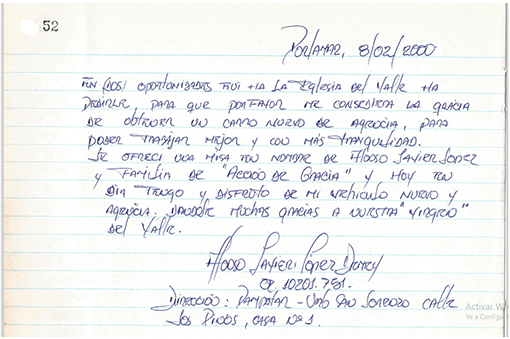 52
Porlamar, 8/02/2000
En (dos) oportunidades fui ha la Iglesia del Valle ha
pedirle, para que por favor me consediera la gracia
de obtener un carro nuevo de agencia, para
poder trabajar mejor y con más tranquilidad.
Le ofreci una misa en nombre de Alfoso Javier Lopez
y Familia de "Acción de Gracia" y hoy en
dia tengo y disfruto de mi vehiculo nuevo y
agencia. Dandole muchas gracias a nuestra "Virgen"
del Valle.
Alfoso Javier López
CI. 10201.751.
Dirección: Pampatar - Urb San Lorenzo calle
Los Pinos, casa Nº 1.
Activar
Ve a Config